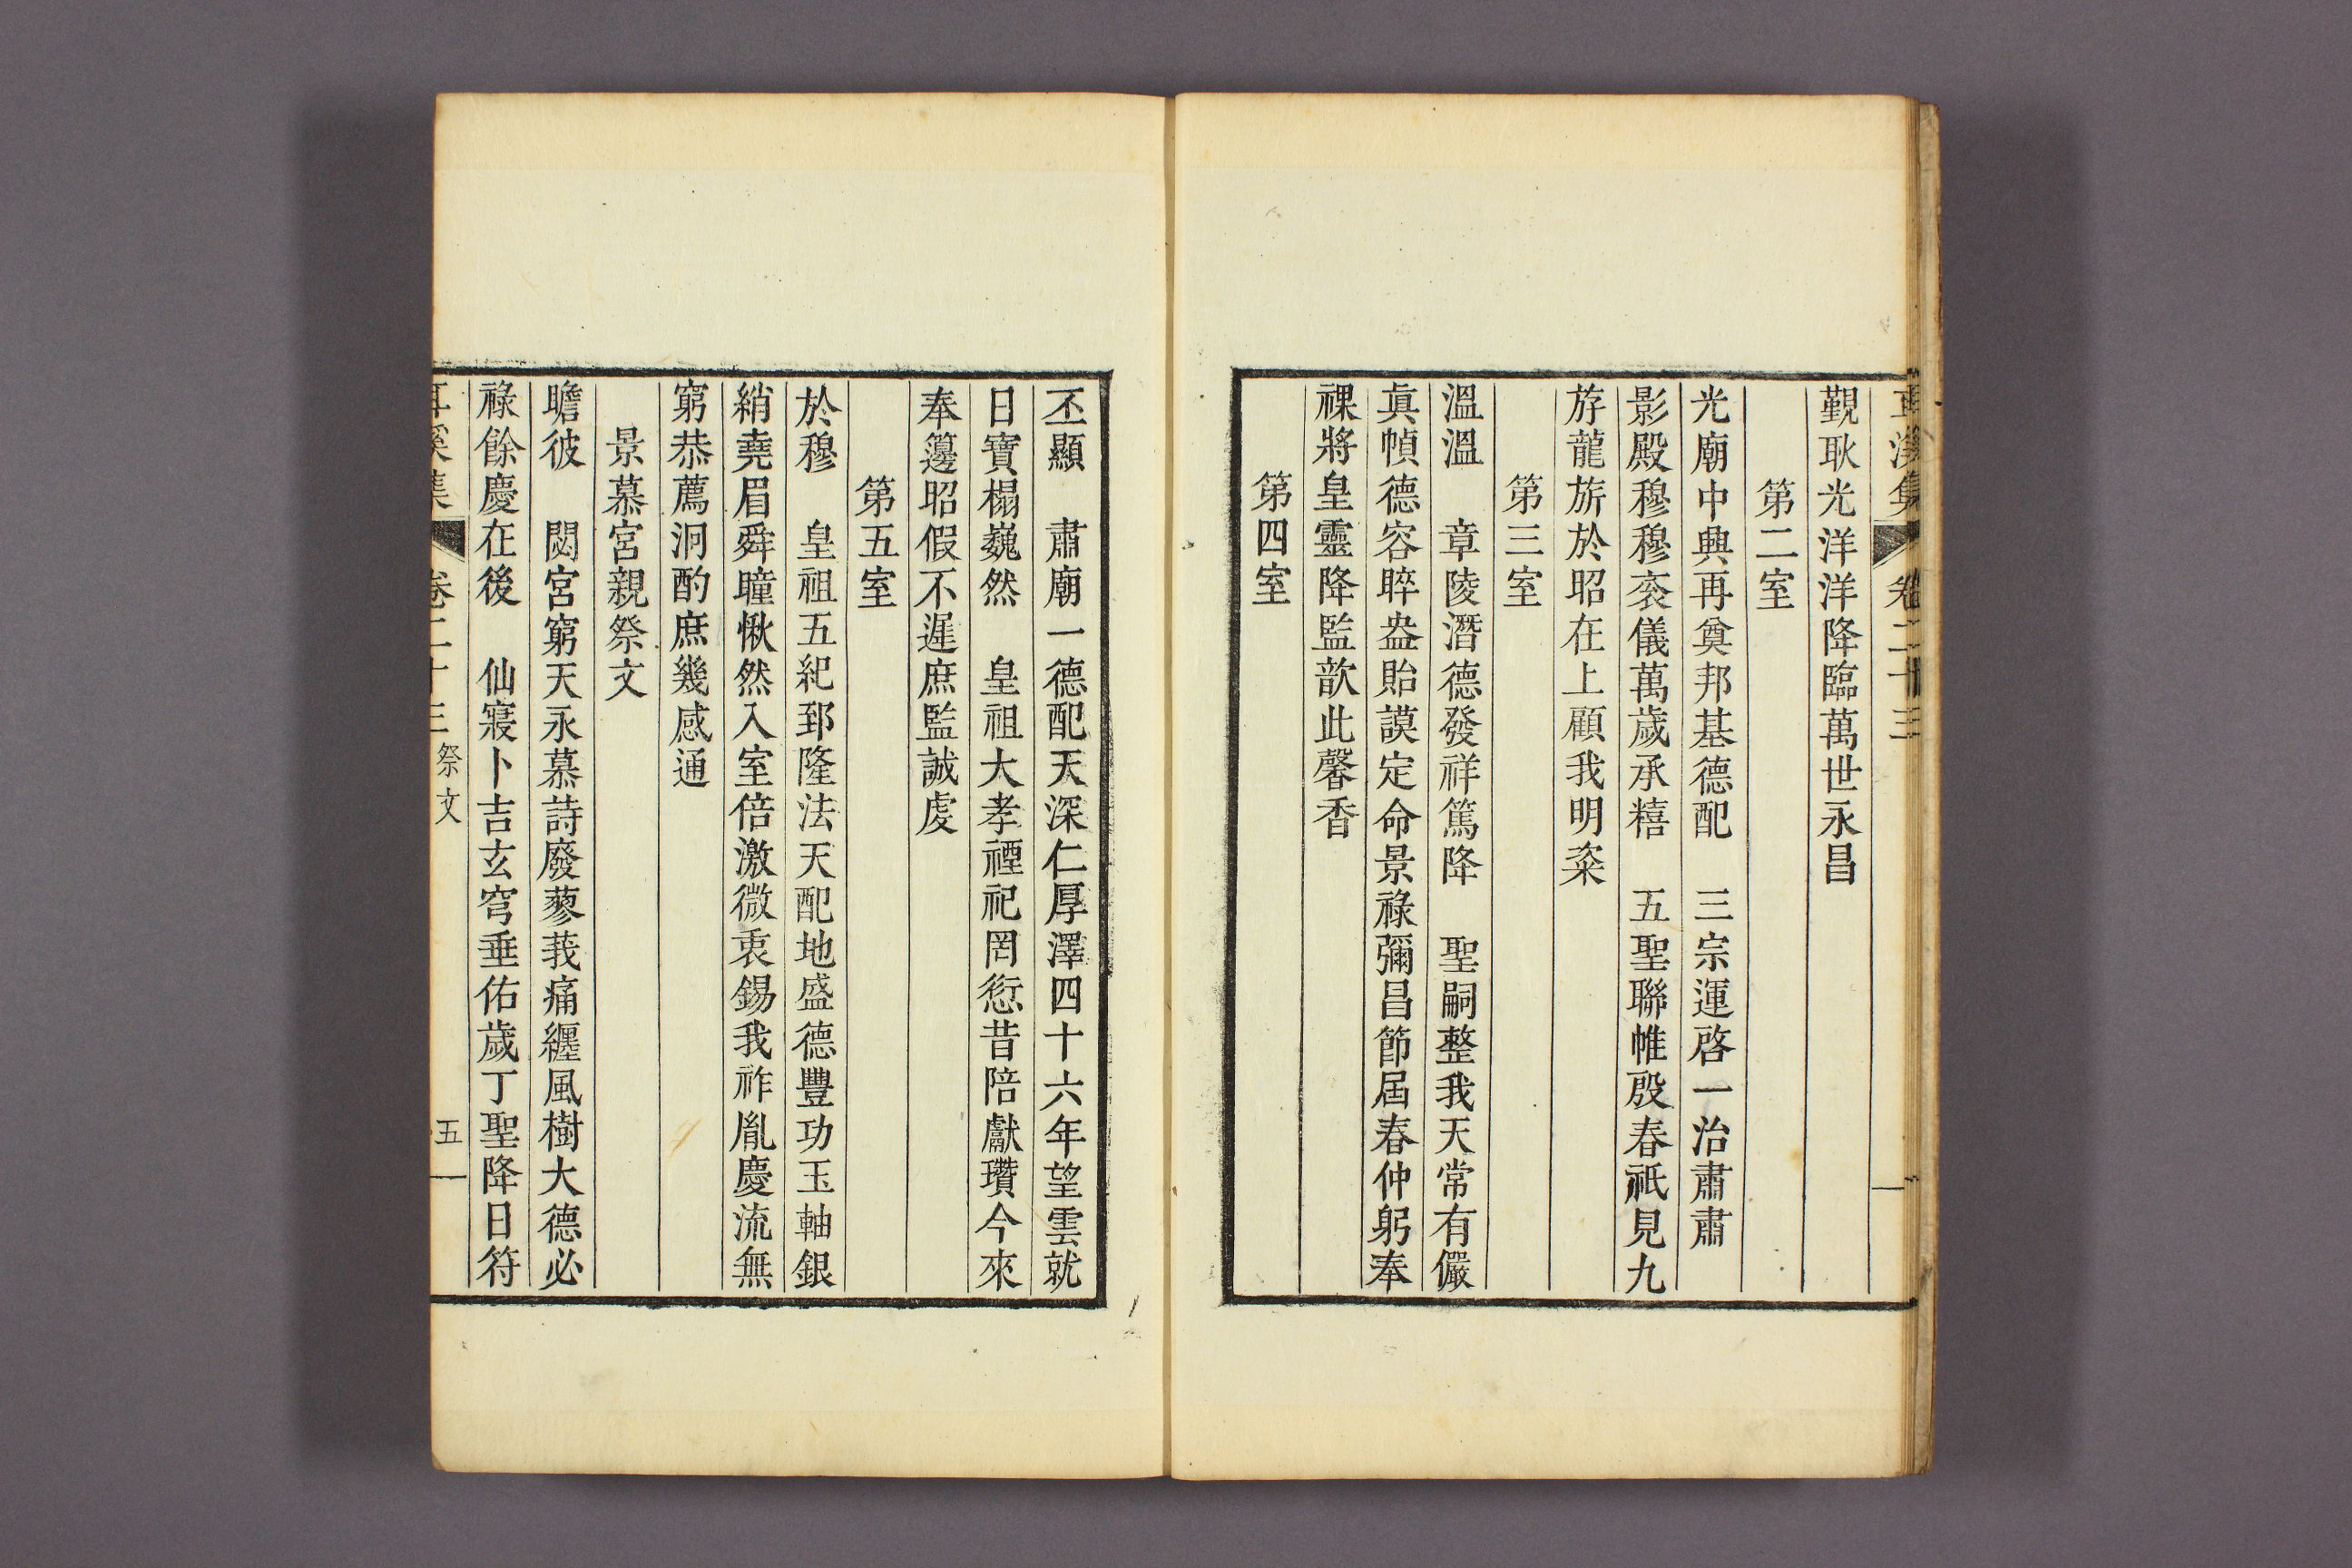 耳溪集 卷二十三
覲耿光洋洋降臨萬世永昌
第二室
光廟中興再奠邦基德配 三宗運啓一治肅肅
影殿穆穆袞儀萬歲承禧 五聖聯帷殷春祇見九
斿龍旂於昭在上顧我明粢
第三室
溫溫 章陵潛德發祥篤降 聖嗣整我天常有儼
眞幀德容睟盎貽謨定命景祿彌昌節屆春仲躬奉
祼將皇靈降監歆此馨香
第四室
丕顯 肅廟一德配天深仁厚澤四十六年望雲就
日寶榻巍然 皇祖大孝禋祀罔愆昔陪獻瓚今來
奉籩昭假不遲庶監誠虔
第五室
於穆 皇祖五紀郅隆法天配地盛德豐功玉軸銀
綃堯眉舜瞳愀然入室倍激微衷錫我祚胤慶流無
窮恭薦泂酌庶幾感通
景慕宮親祭文
瞻彼 閟宮窮天永慕詩廢蓼莪痛纏風樹大德必
祿餘慶在後 仙寢卜吉玄穹垂佑歲丁聖降日符
耳溪集 卷二十三 祭文 五